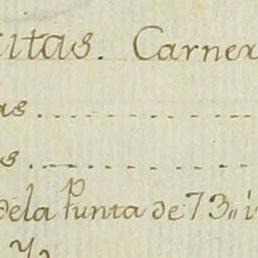 itas. Carner
as ..............
s ..............
dela Punta de 73,, i